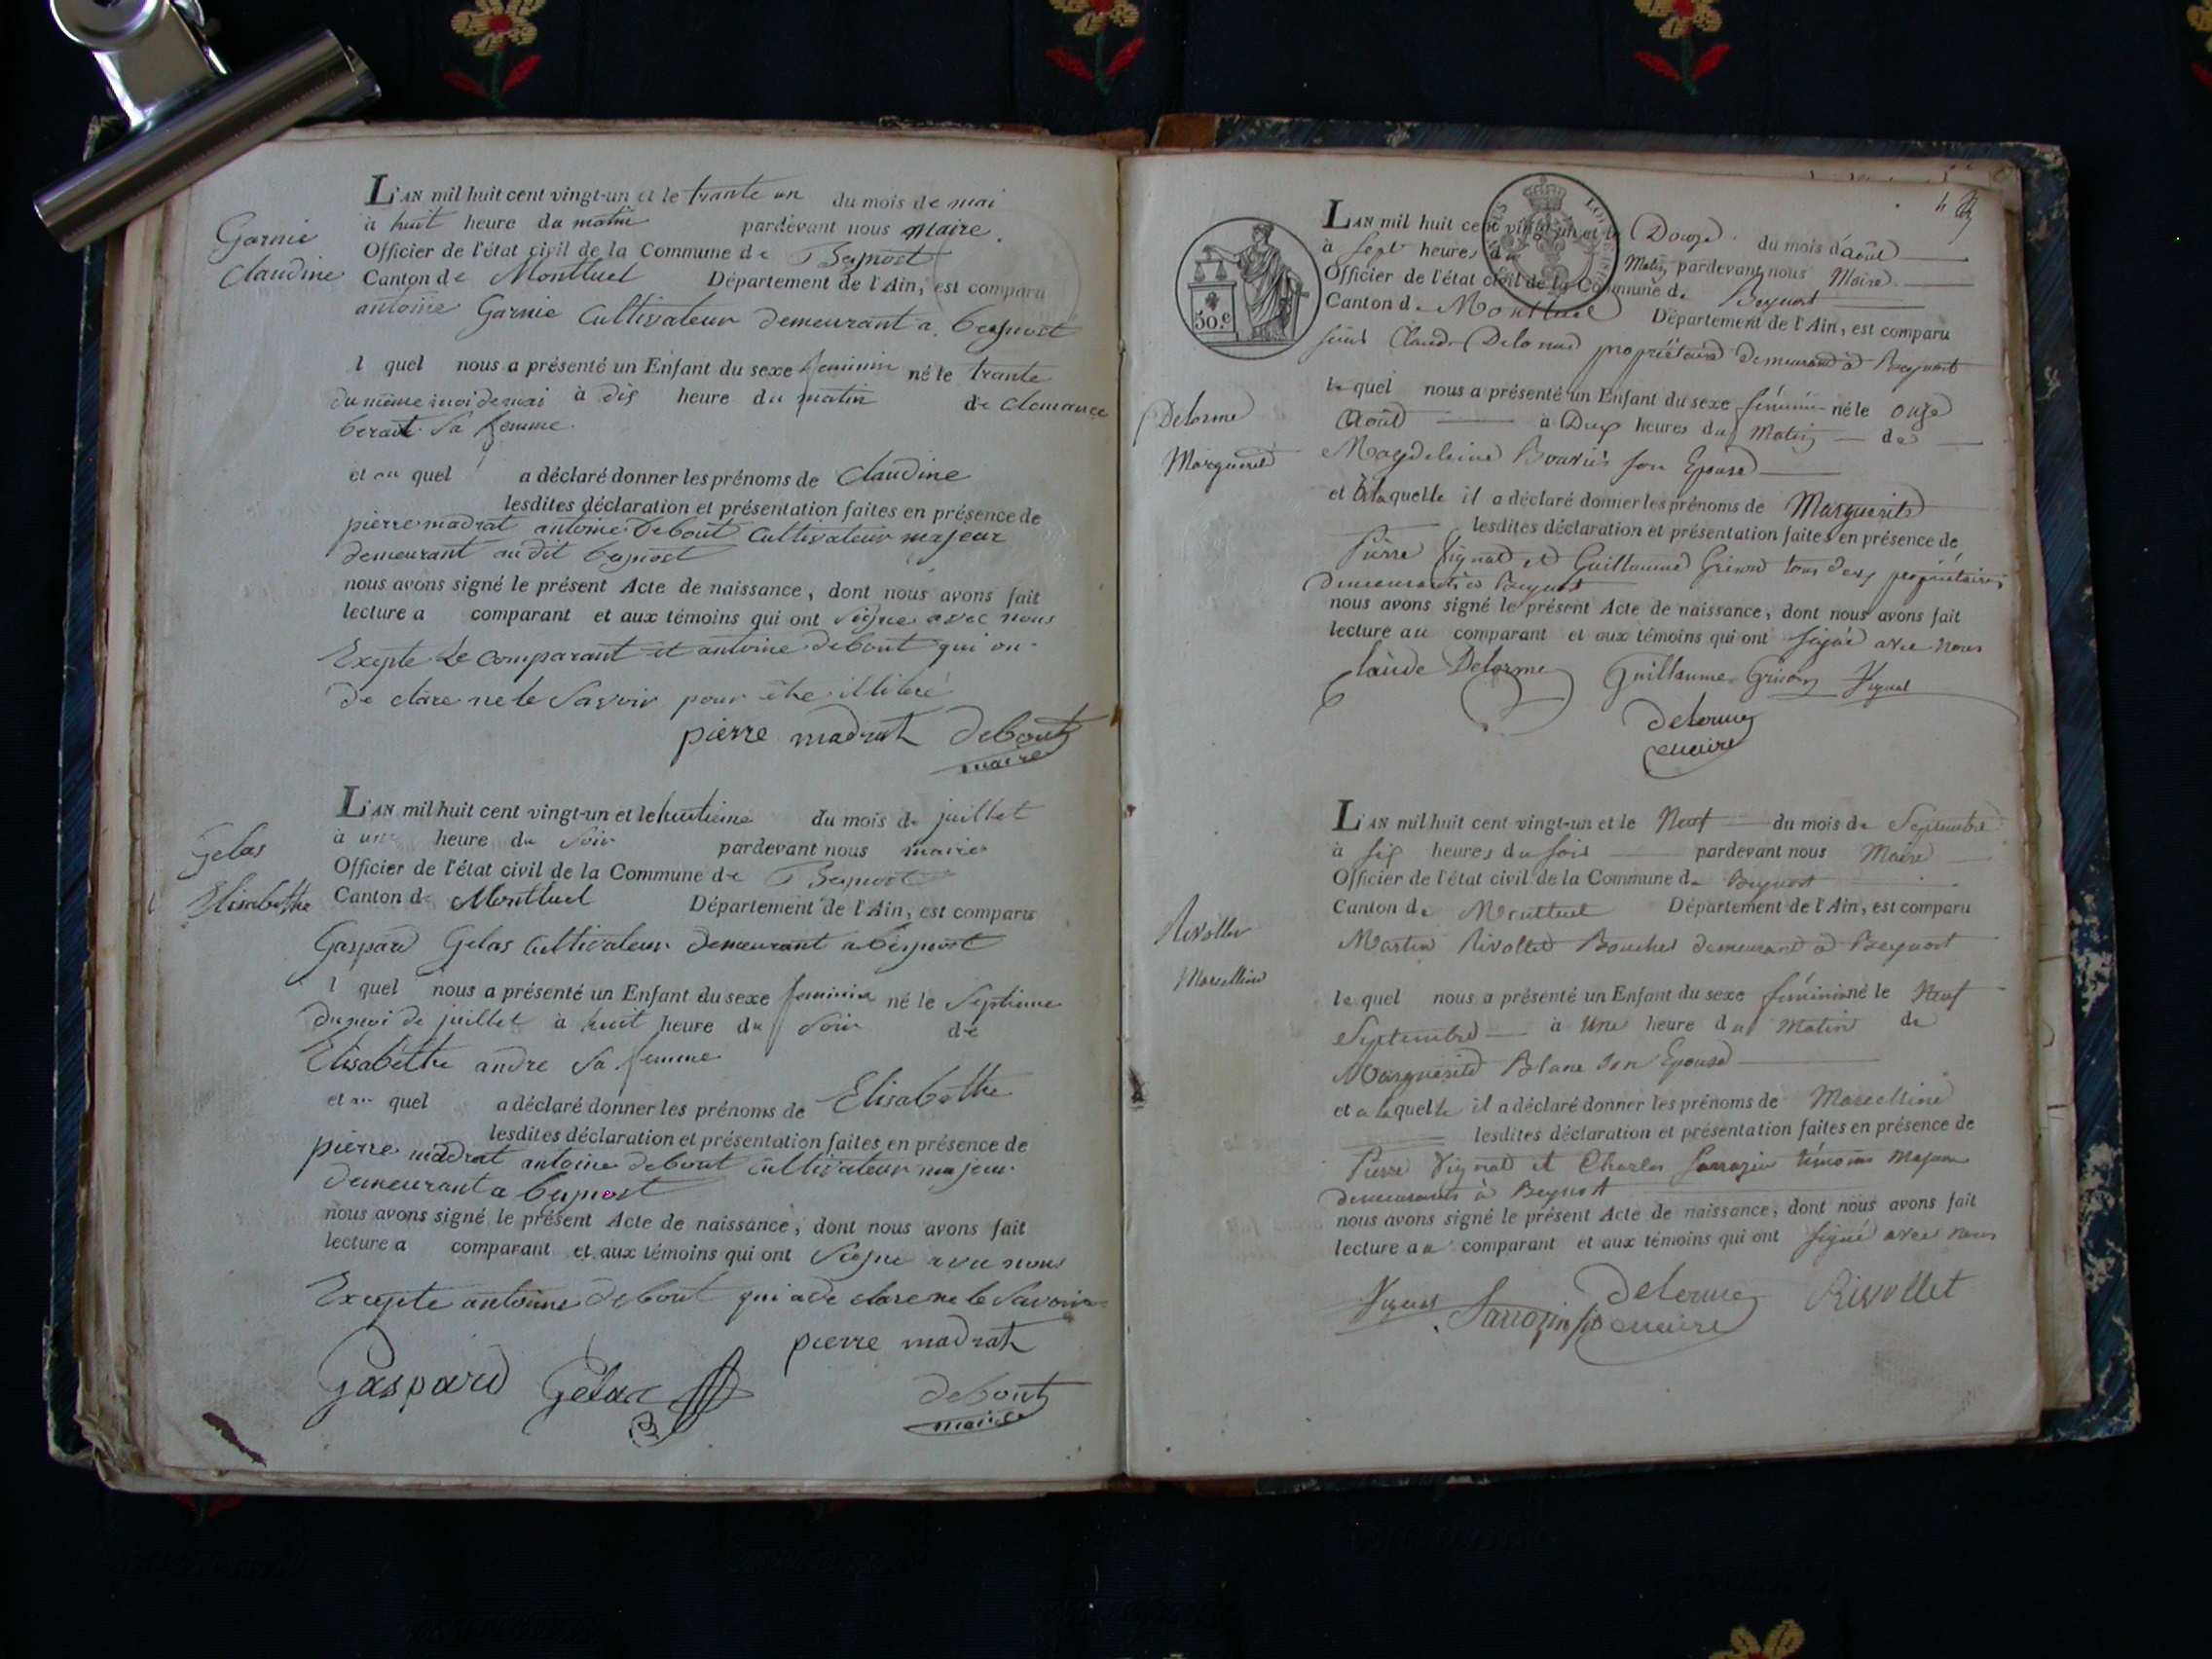 Garnie
Claudine
L'AN mil huit cent vingt-un et le trante un du mois de mai
à huit heure du matin pardevant nous maire
Officier de l'état civil de la Commune de Beynost
Canton de Montluel Département de l'Ain, est comparu
antoine Garnie Cultivateur demeurant a beynost
l quel nous a présenté un Enfant du sexe feminin né le trante
du même moi de mai à dis heure du matin de Clemance
beraut Sa femme
et au quel a déclaré donner les prénoms de Claudine
lesdites déclaration et présentation faites en présence de
pierre madrat antoine debout Cultivateur majeur
demeurant au dit beynost
nous avons signé le présent Acte de naissance, dont nous avons fait
lecture a comparant et aux témoins qui ont Signe avec nous
Exepte Le comparant et antoine debout qui on
de clare ne le Savoir pour être illiteré
pierre madrat debout
maire
Gelas
Elisabethe
L'AN mil huit cent vingt-un et le huitieme du mois de juillet
à une heure du Soir pardevant nous maire
Officier de l'état civil de la Commune de Beynost
Canton de Montluel Département de l'Ain, est comparu
Gaspard Gelas Cultivateur demeurant a beynost
l quel nous a présenté un Enfant du sexe feminin né le Septieme
du moi de juillet à huit heure du Soir de
Elisabethe andre Sa femme
et au quel a déclaré donner les prénoms de Elisabethe
lesdites déclaration et présentation faites en présence de
pierre madrat antoine debout Cultivateur majeur
demeurant a beynost
nous avons signé le présent Acte de naissance, dont nous avons fait
lecture a comparant et aux témoins qui ont Signe avec nous
Excepte antoine debout qui a de clare ne le Savoir
pierre madrat
Gaspard Gelas
debout
maire
4
50.c
L'AN mil huit cent vingt-un et le Douze du mois d'août
à Sept heures du Matin pardevant nous Maire
Officier de l'état civil de la Commune de Beynost
Canton de Montluel Département de l'Ain, est comparu
Claude Delorme propriétaire demeurant à Beynost
Delorme
Marguerite
le quel nous a présenté un Enfant du sexe féminin né le onze
Août à Dix heures du Matin de
Magdeleine son Epouse
et à la quelle il a déclaré donner les prénoms de Marguerite
lesdites déclaration et présentation faites en présence de
Pierre Vignat et Guillaume Grison tous deux propriétaires
demeurants à Beynost
nous avons signé le présent Acte de naissance, dont nous avons fait
lecture au comparant et aux témoins qui ont signé avec nous
Claude Delorme Guillaume Grison Vignat
delorme
maire
Rivollet
Marcelline
L'AN mil huit cent vingt-un et le Neuf du mois de Septembre
à six heures du soir pardevant nous Maire
Officier de l'état civil de la Commune de Beynost
Canton de Montluel Département de l'Ain, est comparu
Martin Rivollet Boucher demeurant à Beynost
le quel nous a présenté un Enfant du sexe féminin né le Neuf
Septembre à Une heure du Matin de
Marguerite Blanc son Epouse
et a laquelle il a déclaré donner les prénoms de Marcelline
lesdites déclaration et présentation faites en présence de
Pierre Vignat et Charles Sarrazin témoins Majeurs
demeurants à Beynost
nous avons signé le présent Acte de naissance, dont nous avons fait
lecture au comparant et aux témoins qui ont signé avec nous
Vignat Sarrazin fils delorme Rivollet
maire